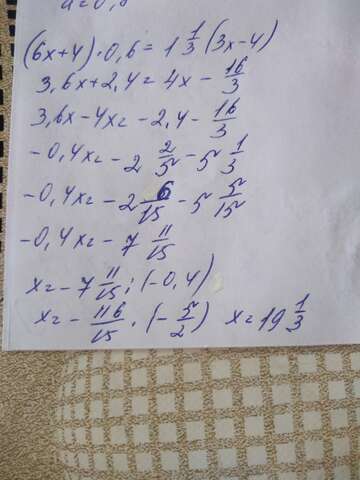 (6x+4)·0,6=1 1/3 (3x-4)
3,6x+2,4=4x-16/3
3,6x-4x=-2,4-16/3
-0,4x=-2 2/5-5 1/3
-0,4x=-2 6/15-5 5/15
-0,4x=-7 11/15
x=-7 11/15:(-0,4)
x=-116/15·(-5/2) x=19 1/3